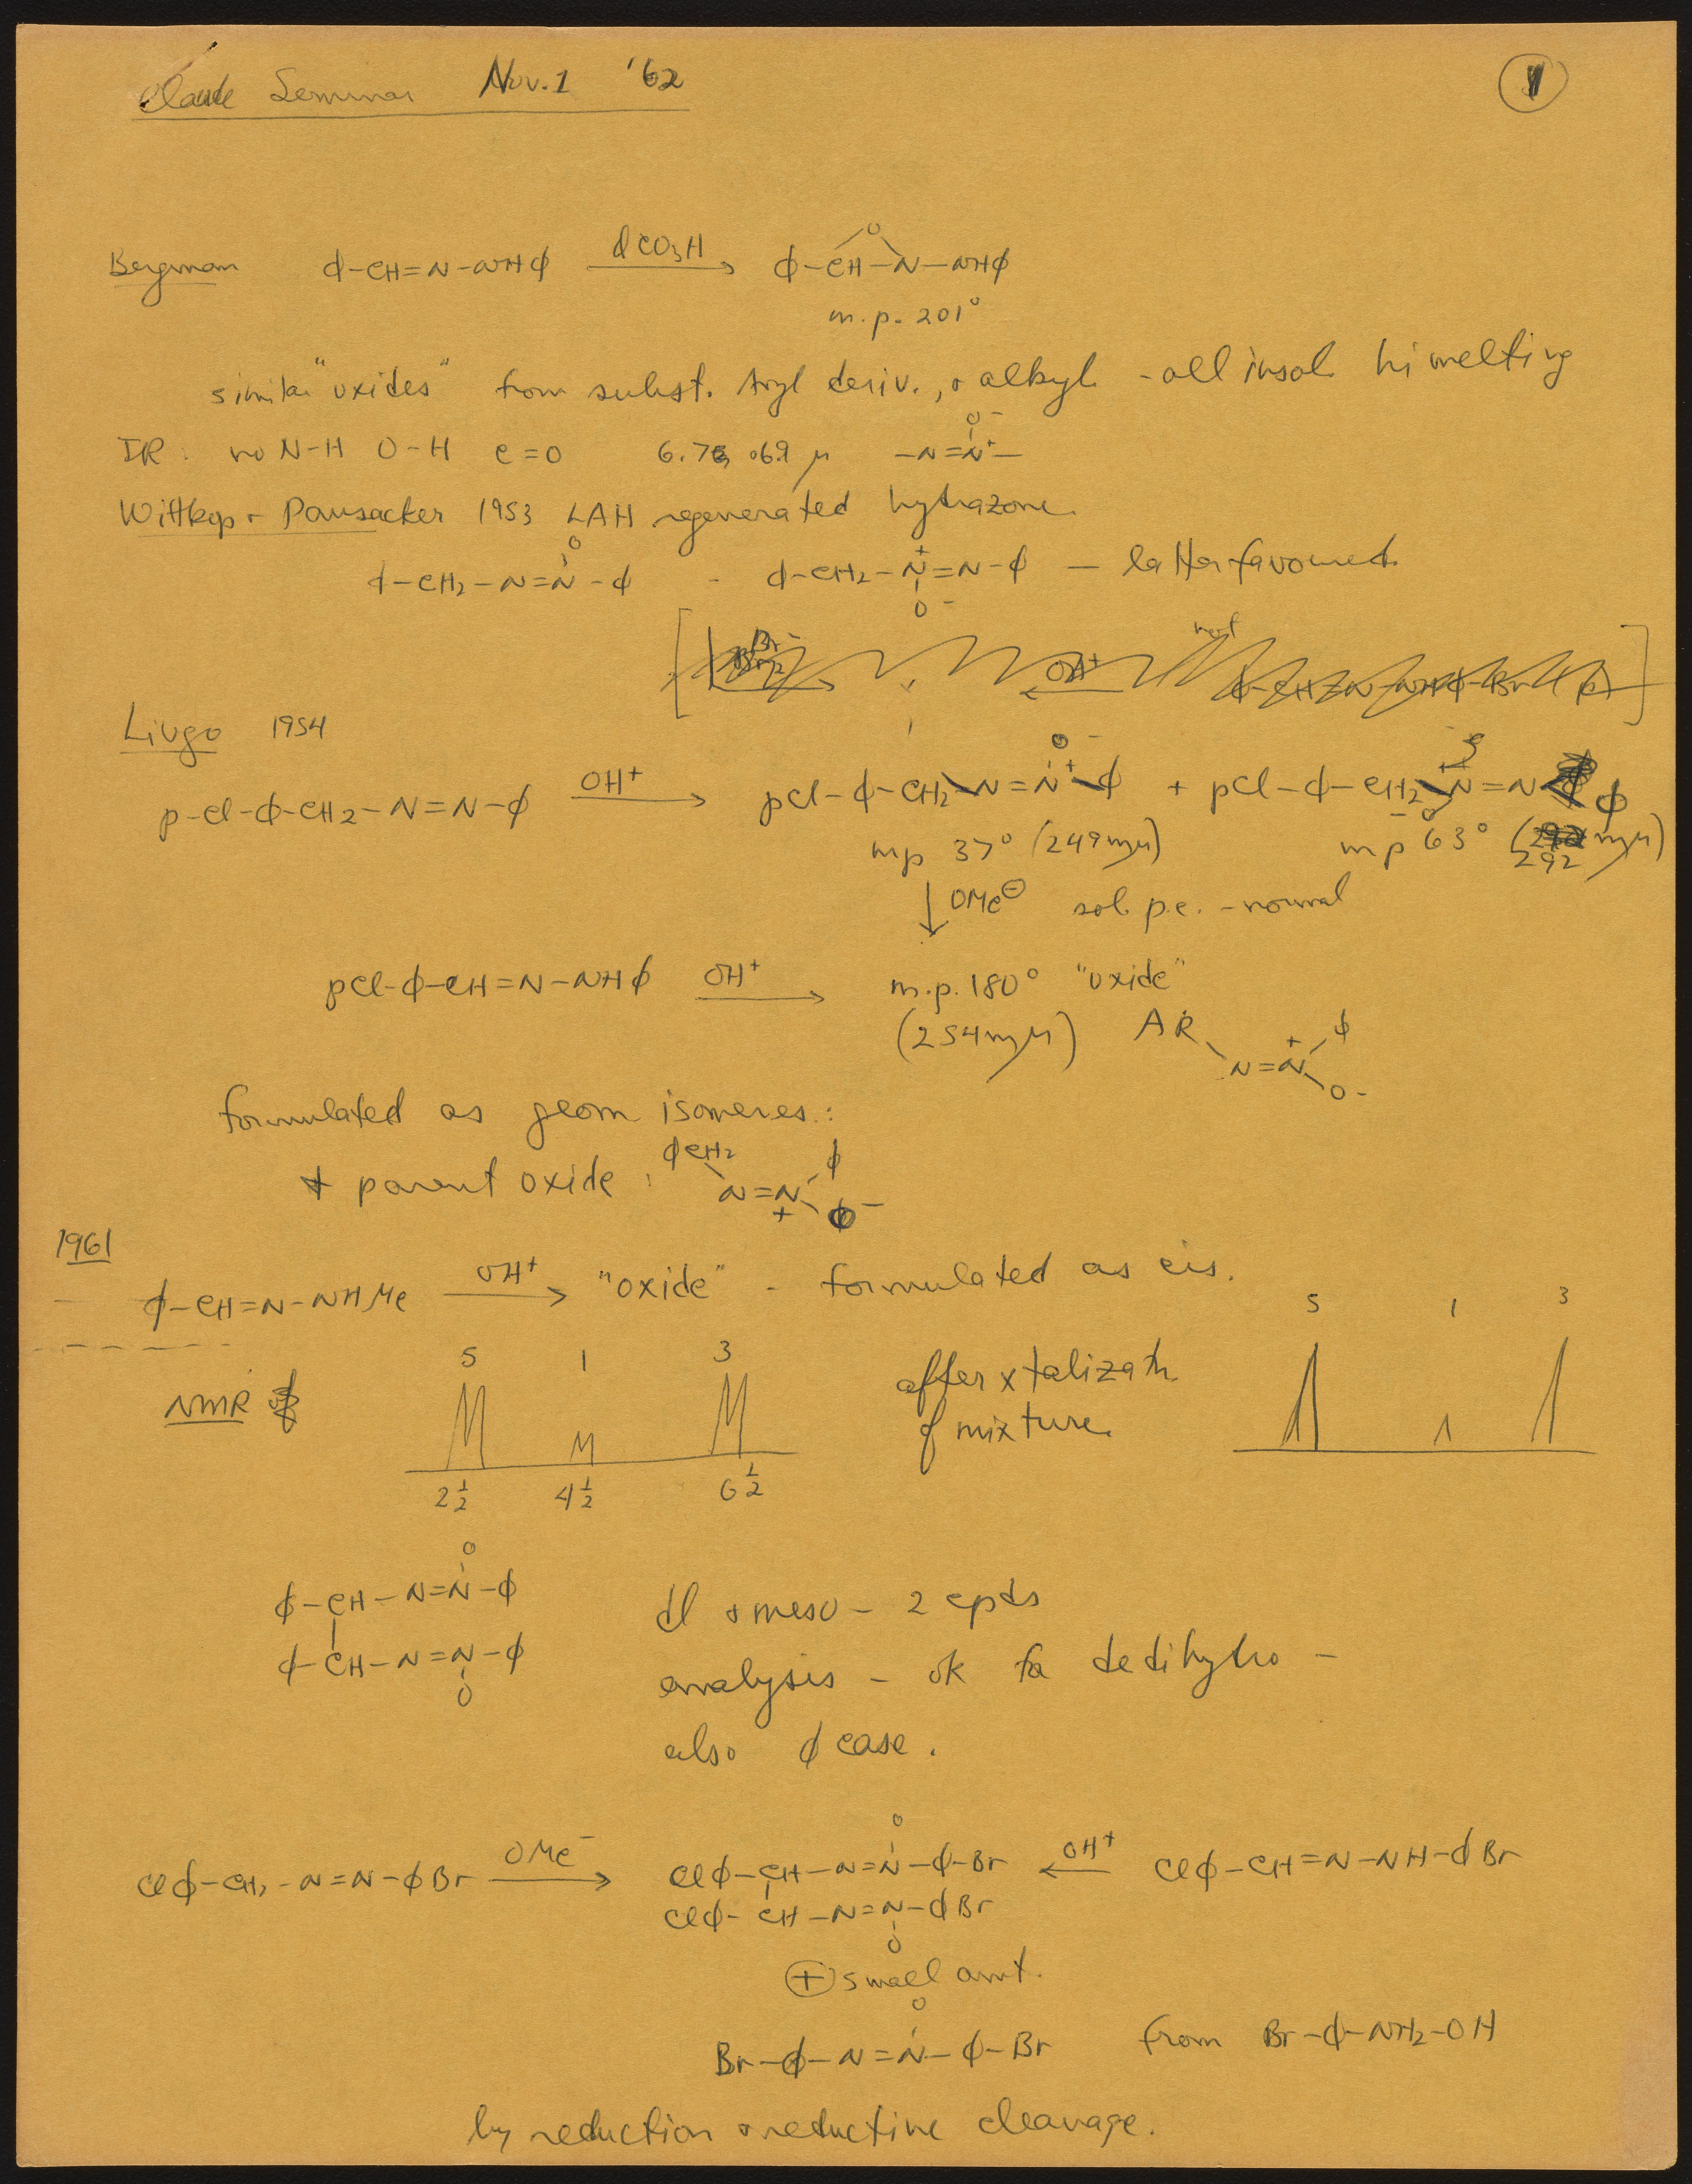 Claude Seminar Nov. 1 '62
1
Bergman ϕ-CH=N-NHϕ ϕCO3H → ϕ-CH-N-NHϕ
O
m.p. 201°
similar "oxides" from subst. Aryl deriv., + alkyl - all insol. hi melting
IR: no N-H O-H C=O 6.76, 6.9 μ -N=N⁺- O⁻
Wittkop + Pausacker 1953 LAH regenerated hydrazone.
ϕ-CH2-N=N-ϕ O - ϕ-CH2-N⁺=N-ϕ O⁻ — latter favoured.
OH⁺
ϕ-CH=N-NHϕ-Br
Livgo 1954
p-Cl-ϕ-CH2-N=N-ϕ OH⁺ → pCl-ϕ-CH2-N=N⁺-ϕ O⁻ + pCl-ϕ-CH2-N⁺=N-ϕ O⁻
mp 37° (249mμ) mp 63° (292 mμ)
↓ OMe⊖ sol. p.e. - normal
pCl-ϕ-CH=N-NHϕ OH⁺ → m.p. 180° "oxide"
(254mμ) AR N=N⁺ ϕ O-
formulated as geom isomeres:
+ parent oxide: ϕCH2 N=N⁺ ϕ O⁻
1961
ϕ-CH=N-NHMe OH⁺ → "oxide" - formulated as cis.
NMR of
5 1 3
2½ 4½ 6½
after xtalizatn.
of mixture.
5 1 3
ϕ-CH-N=N-ϕ O
ϕ-CH-N=N-ϕ O
dl + meso - 2 cpds
analysis - ok for dedihydro -
also ϕ case.
Clϕ-CH2-N=N-ϕBr OMe⁻ → Clϕ-CH-N=N-ϕ-Br O ← OH⁺ Clϕ-CH=N-NH-ϕBr
Clϕ-CH-N=N-ϕBr O
⊕ small amt.
Br-ϕ-N=N-ϕ-Br O from Br-ϕ-NH2-OH
by reduction + reductive cleavage.